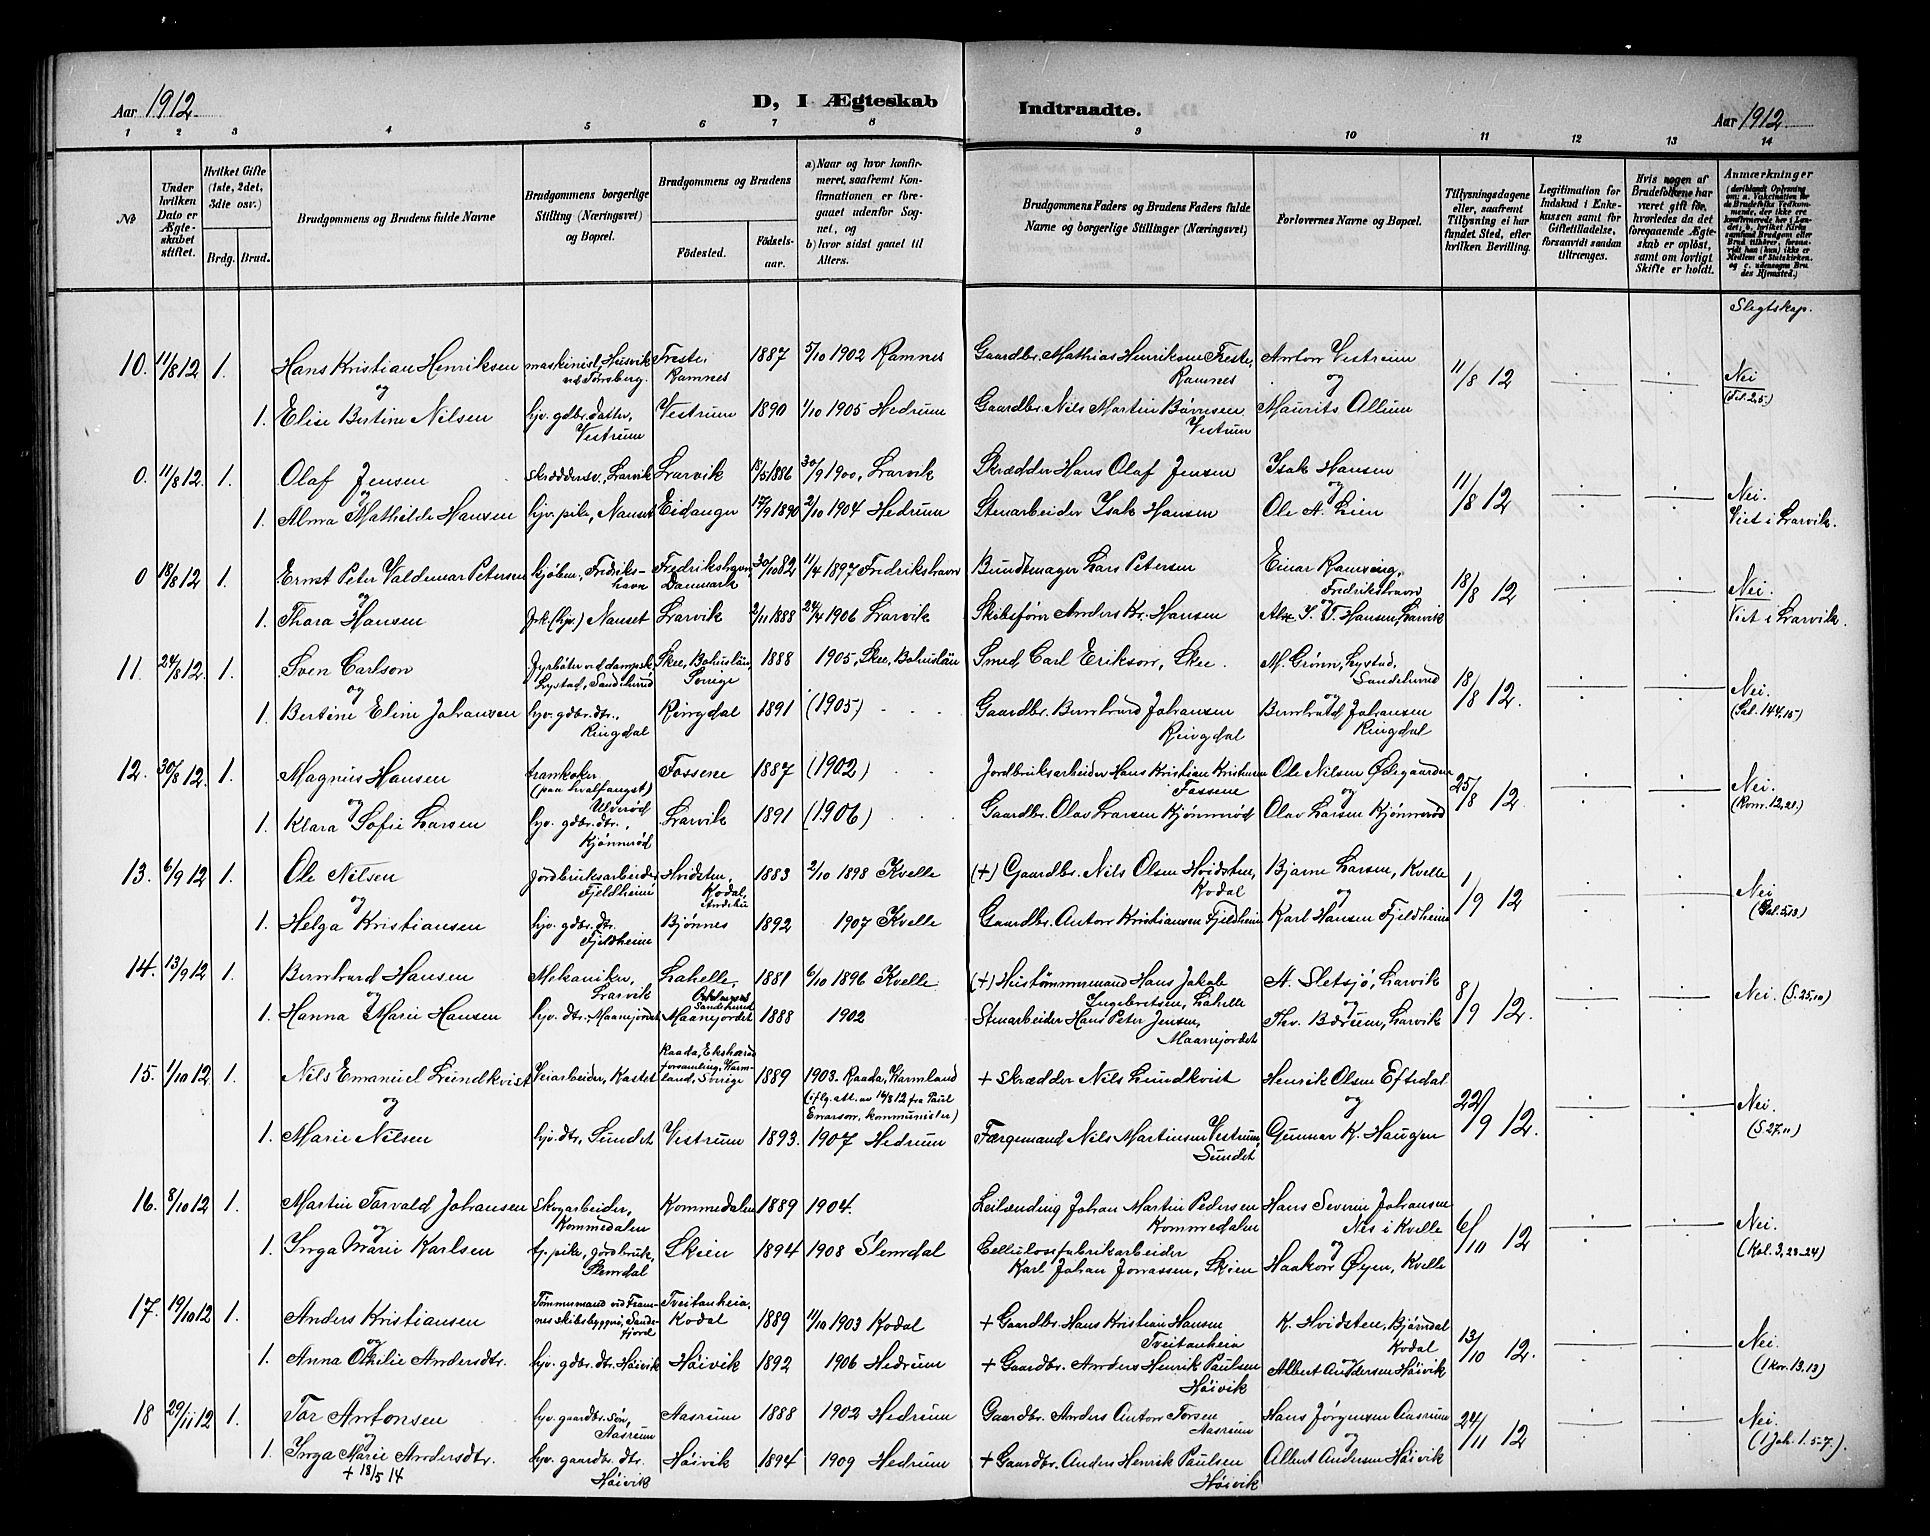 Aar 1912. D, I Ægteskab Indtraadte. Aar 1912.
1 2 3 4 5 6 7 8 9 10 11 12 13 14
№
Under hvilken Dato er Ægteskabet stiftet.
Hvilket Gifte (1ste, 2det, 3dte osv.)
Brdg. Brud.
Brudgommens og Brudens fulde Navne
Brudgommens borgerlige Stilling (Næringsvei) og Bopæl.
Brudgommens og Brudens
Födested.
Födselsaar.
a) Naar og hvor konfirmeret, saafremt Konfirmationen er foregaaet udenfor Sognet, og
b) hvor sidst gaaet til Alters.
Brudgommens Faders og Brudens Faders fulde Navne og borgerlige Stillinger (Næringsvei)
Forlovernes Navne og Bopæl.
Tillysningsdagene eller, saafremt Tillysning ei har fundet Sted, efter hvilken Bevilling.
Legitimation for Indskud i Enkekassen samt for Giftetilladelse, forsaavidt saadan tiltrænges.
Hvis nogen af Brudefolkene har været gift før, hvorledes da det foregaaende Ægteskab er opløst, samt om lovligt Skifte er holdt.
Anmærkninger
Slegtskap.
10. 11/8 12 1. Hans Kristian Henriksen maskinist, Husvik Freste, 1887 5/10 1902 Ramnes Gaardbr. Mathias Henriksen Freste, Anton Vestreim 11/8 12 Nei
og ved Tønsberg. Ramnes Ramnes og
1. Elise Bertine Nilsen hjv. gdbr. datter, Vestrum 1890 1/10 1905 Hedrum Gaardbr. Nils Martin Børresen Maurits Allum
Vestrum Vestrum
0. 11/8 12. 1. Olaf Jensen skræddersv., Larvik Larvik 13/5 1886 30/9 1900, Larvik Skrædder Hans Olaf Jensen Isak Hansen 11/8 12 Nei.
og og
1. Alma Mathilde Hansen hjv. pike, Nanset Eidanger 17/9 1890 2/10 1904 Hedrum Stenarbeider Isak Hansen Ole A. Lien Viet i Larvik.
0 18/8 12 1. Ernst Peter Valdemar Petersen kjøbm., Fredrikshavn Fredrikshavn, Danmark 30/10 82 11/4 1897 Fredrikshavn Bundtmager Lars Petersen Einar Ramsing, Fredrikshavn 18/8 12 Nei.
og og
1. Thora Hansen frk. (hjv.) Nanset Larvik 2/11 1888 24/4 1906 Larvik Skibsfører Anders Kr. Hansen T. Hansen, Larvik Viet i Larvik.
11. 24/8 12. 1. Sven Carlson fyrbøter ved dampsk. Skee, Bohuslän, 1888 1905, Skee, Bohuslän Smed Carl Erikson, Skee. M. Grönn, Lystad, 18/8 12. Nei.
og Lystad, Sandeherred Sverige Sandeherred
1. Bertine Eline Johansen hjv. gdbr. dtr., Ringdal 1891 (1905) Gaardbr. Bernhard Johansen Bernhard Johansen (Sal. 144,15)
Ringdal Ringdal Ringdal
12. 30/8 12. 1. Magnus Hansen trankoker Fossene 1887 (1902) Jordbruksarbeider Hans Kristian Kristensen Ole Nilsen Ødegaarden 25/8 12. Nei.
og (paa hvalfangst) Fossene og (Rom. 12,21.)
Ulverød
1. Klara Sofie Larsen hjv. gdbr. dtr., Larvik 1891 (1906) Gaardbr. Olav Larsen Kjønnerød Olav Larsen Kjønnerød
Kjønnerød
13. 6/9 12 1. Ole Nilsen Jordbruksarbeider Hvidsten, 1883 2/10 1898 Kvelle (+) Gaardbr. Nils Olsen Hvidsten, Bjarne Larsen, Kvelle 1/9 12 Nei.
og Fjeldheim Kodal, Andebu Kodal og
1. Helga Kristiansen hjv. gdbr. dtr. Bjønnes 1892 1907 Kvelle Gaardbr. Anton Kristiansen Fjeldheim Karl Hansen Fjeldheim
Fjeldheim
14. 13/9 12 1. Bernhard Hansen Mekaniker, Lahelle, 1881 6/10 1896 Kvelle. (+) Hustømmermand Hans Jakob A. Sletsjø, Larvik 8/9 12. Nei. (S. 25,10)
og Larvik Sandeherred Ingebretsen, Lahelle og
1. Hanna Marie Hansen hjv. dtr. Maanejordet Maanejordet 1888 1902 Stenarbeider Hans Peter Jensen, Thv. Bærum, Larvik
Maanejordet
15. 1/10 12 1. Nils Emanuel Lundkvist Veiarbeider, Kastet Raada, Ekshärad forsamling, Värmland, Sverige 1889 1903. Raada, Värmland + Skrædder Nils Lundkvist Henrik Olsen Eftedal 22/9 12. Nei.
og (iflg. att. av 16/8 12 fra Paul Enarson, kommunister) og (S 27,11)
1. Marie Nilsen hjv. dtr, Sundet Vestrum 1893. 1907 Hedrum Færgemand Nils Martinsen Vestrum, Gunnar K. Haugen
Sundet
16. 8/10 12 1. Martin Torvald Johansen Skogarbeider, Kommedalen 1889 1904. Leilending Johan Martin Pedersen Hans Severin Johansen 6/10 12 Nei.
og Kommedalen Kommedalen Nes i Kvelle (Kol. 3, 23-24)
1. Inga Marie Karlsen tj. pike, gdrsbruk, Skien 1894 1908 Slemdal Cellulosefabrikarbeider og
Slemdal Karl Johan Jonassen, Skien Haakon Øyen, Kvelle
17. 19/10 12 1. Anders Kristiansen Tømmermand ved Framnes skibsbyggeri, Sandefjord Tveitanheia, Kodal 1889 11/10 1903 Kodal + Gaardbr. Hans Kristian Hansen K. Hvidsten, Bjørndal 13/10 12. Nei.
og Tveitanheia Kodal (1 Kor. 13,13)
1. Anna Othilie Andersdtr. hjv. gdbr. dtr. Høivik Høivik 1892 1906 Hedrum + Gaardbr. Anders Henrik Paulsen Albert Andersen Høivik
Høivik
18 29/11 12 1. Tor Antonsen hjv. gaardbr. søn, Aasrum 1888 1902 Hedrum Gaardbr. Anders Anton Torsen Hans Jørgensen Aasrum 24/11 12 Nei.
og Aasrum Aasrum og (1 Joh. 1. 5-7.)
1. Inga Marie Andersdtr. hjv. gaardbr. dtr. Høivik 1894 1909 Hedrum + Gaardbr. Anders Henrik Paulsen Albert Andersen Høivik
+ 18/5 14 Høivik Høivik